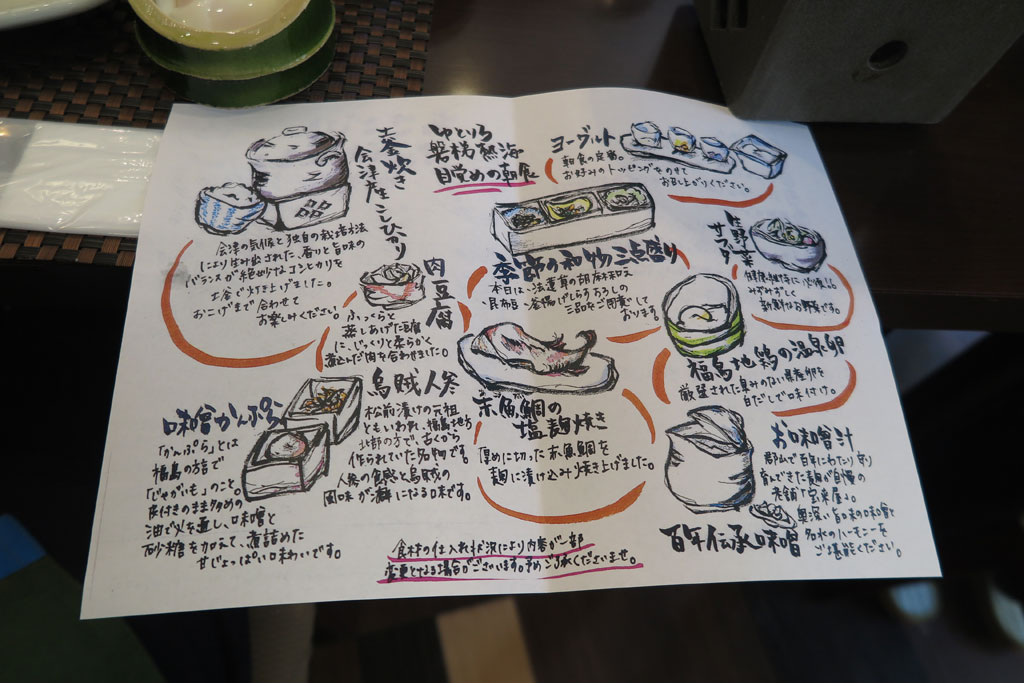 ゆとりろ
磐梯熱海
目覚めの朝食
土釜炊き
会津産こしひかり
会津の気候と独自の栽培方法
により生み出された、香りと旨味の
バランスが絶妙なコシヒカリを
土釜で炊き上げました。
おこげまで合わせて
お楽しみください。
ヨーグルト
朝食の定番。
お好みのトッピングをのせて
お召し上がりください。
季節の和え物三点盛り
本日は、法蓮草の胡麻和え
昆布豆、釜揚げしらすおろしの
三品をご用意して
おります。
生野菜
サラダ
健康維持に
みずみずしく
新鮮なお野菜です。
肉豆腐
ふっくらと
蒸しあげた豆腐
に、じっくりと柔らかく
煮込んだ肉を合わせました。
福島地鶏の温泉卵
厳選された臭みのない県産卵を
白だしで味付け。
赤魚鯛の
塩麹焼き
厚めに切った赤魚鯛を
麹に漬け込み焼き上げました。
烏賊人参
松前漬けの元祖
ともいわれ、福島地方
北部の方で、古くから
作られていた名物です。
人参の食感と烏賊の
風味が癖になる味です。
味噌かんぷら
「かんぷら」とは
福島の方言で
「じゃがいも」のこと。
皮付きのまま多めの
油で火を通し、味噌と
砂糖を加えて、煮詰めた
甘じょっぱい味わいです。
お味噌汁
百年伝承味噌
郡山で百年にわたり守り
育んできた麹が自慢の
老舗「宝来屋」。
奥深い旨味の味噌と
名水のハーモニーを
ご堪能ください。
食材の仕入れ状況により内容が一部
変更となる場合がございます。予めご了承くださいませ。